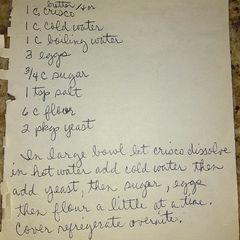 butter / or
1 c, crisco
1 c cold water
1 c boiling water
3 eggs
3/4 c sugar
1 tsp salt
6 c flour
2 pkgs yeast
In large bowl let crisco dissolve
in hot water add cold water then
add yeast, then sugar, eggs
then flour a little at a time.
Cover refrigerate overnite.